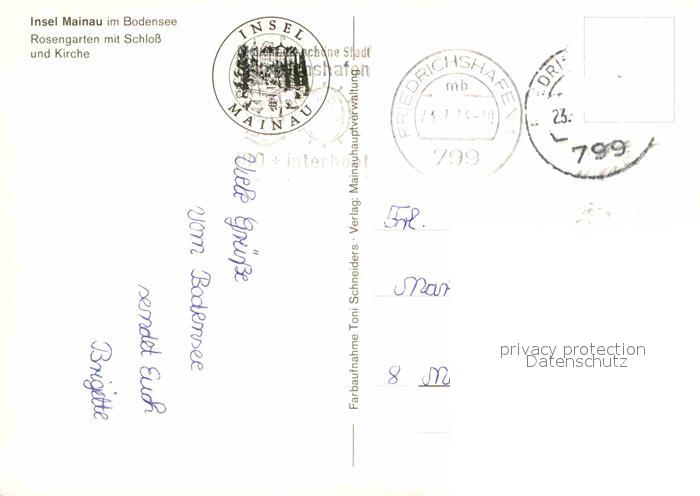 Insel Mainau im Bodensee
Rosengarten mit Schloß
und Kirche
INSEL
MAINAU
schöne Stadt
+ interho
FRIEDRICHSHAFEN 1
mb
23.7.73-10
799
EDRI
23.
799
Viele Grüße
vom Bodensee
sendet Euch
Brigitte
Farbaufnahme Toni Schneiders · Verlag: Mainauhauptverwaltung
Frl.
Mar
8 M
privacy protection
Datenschutz